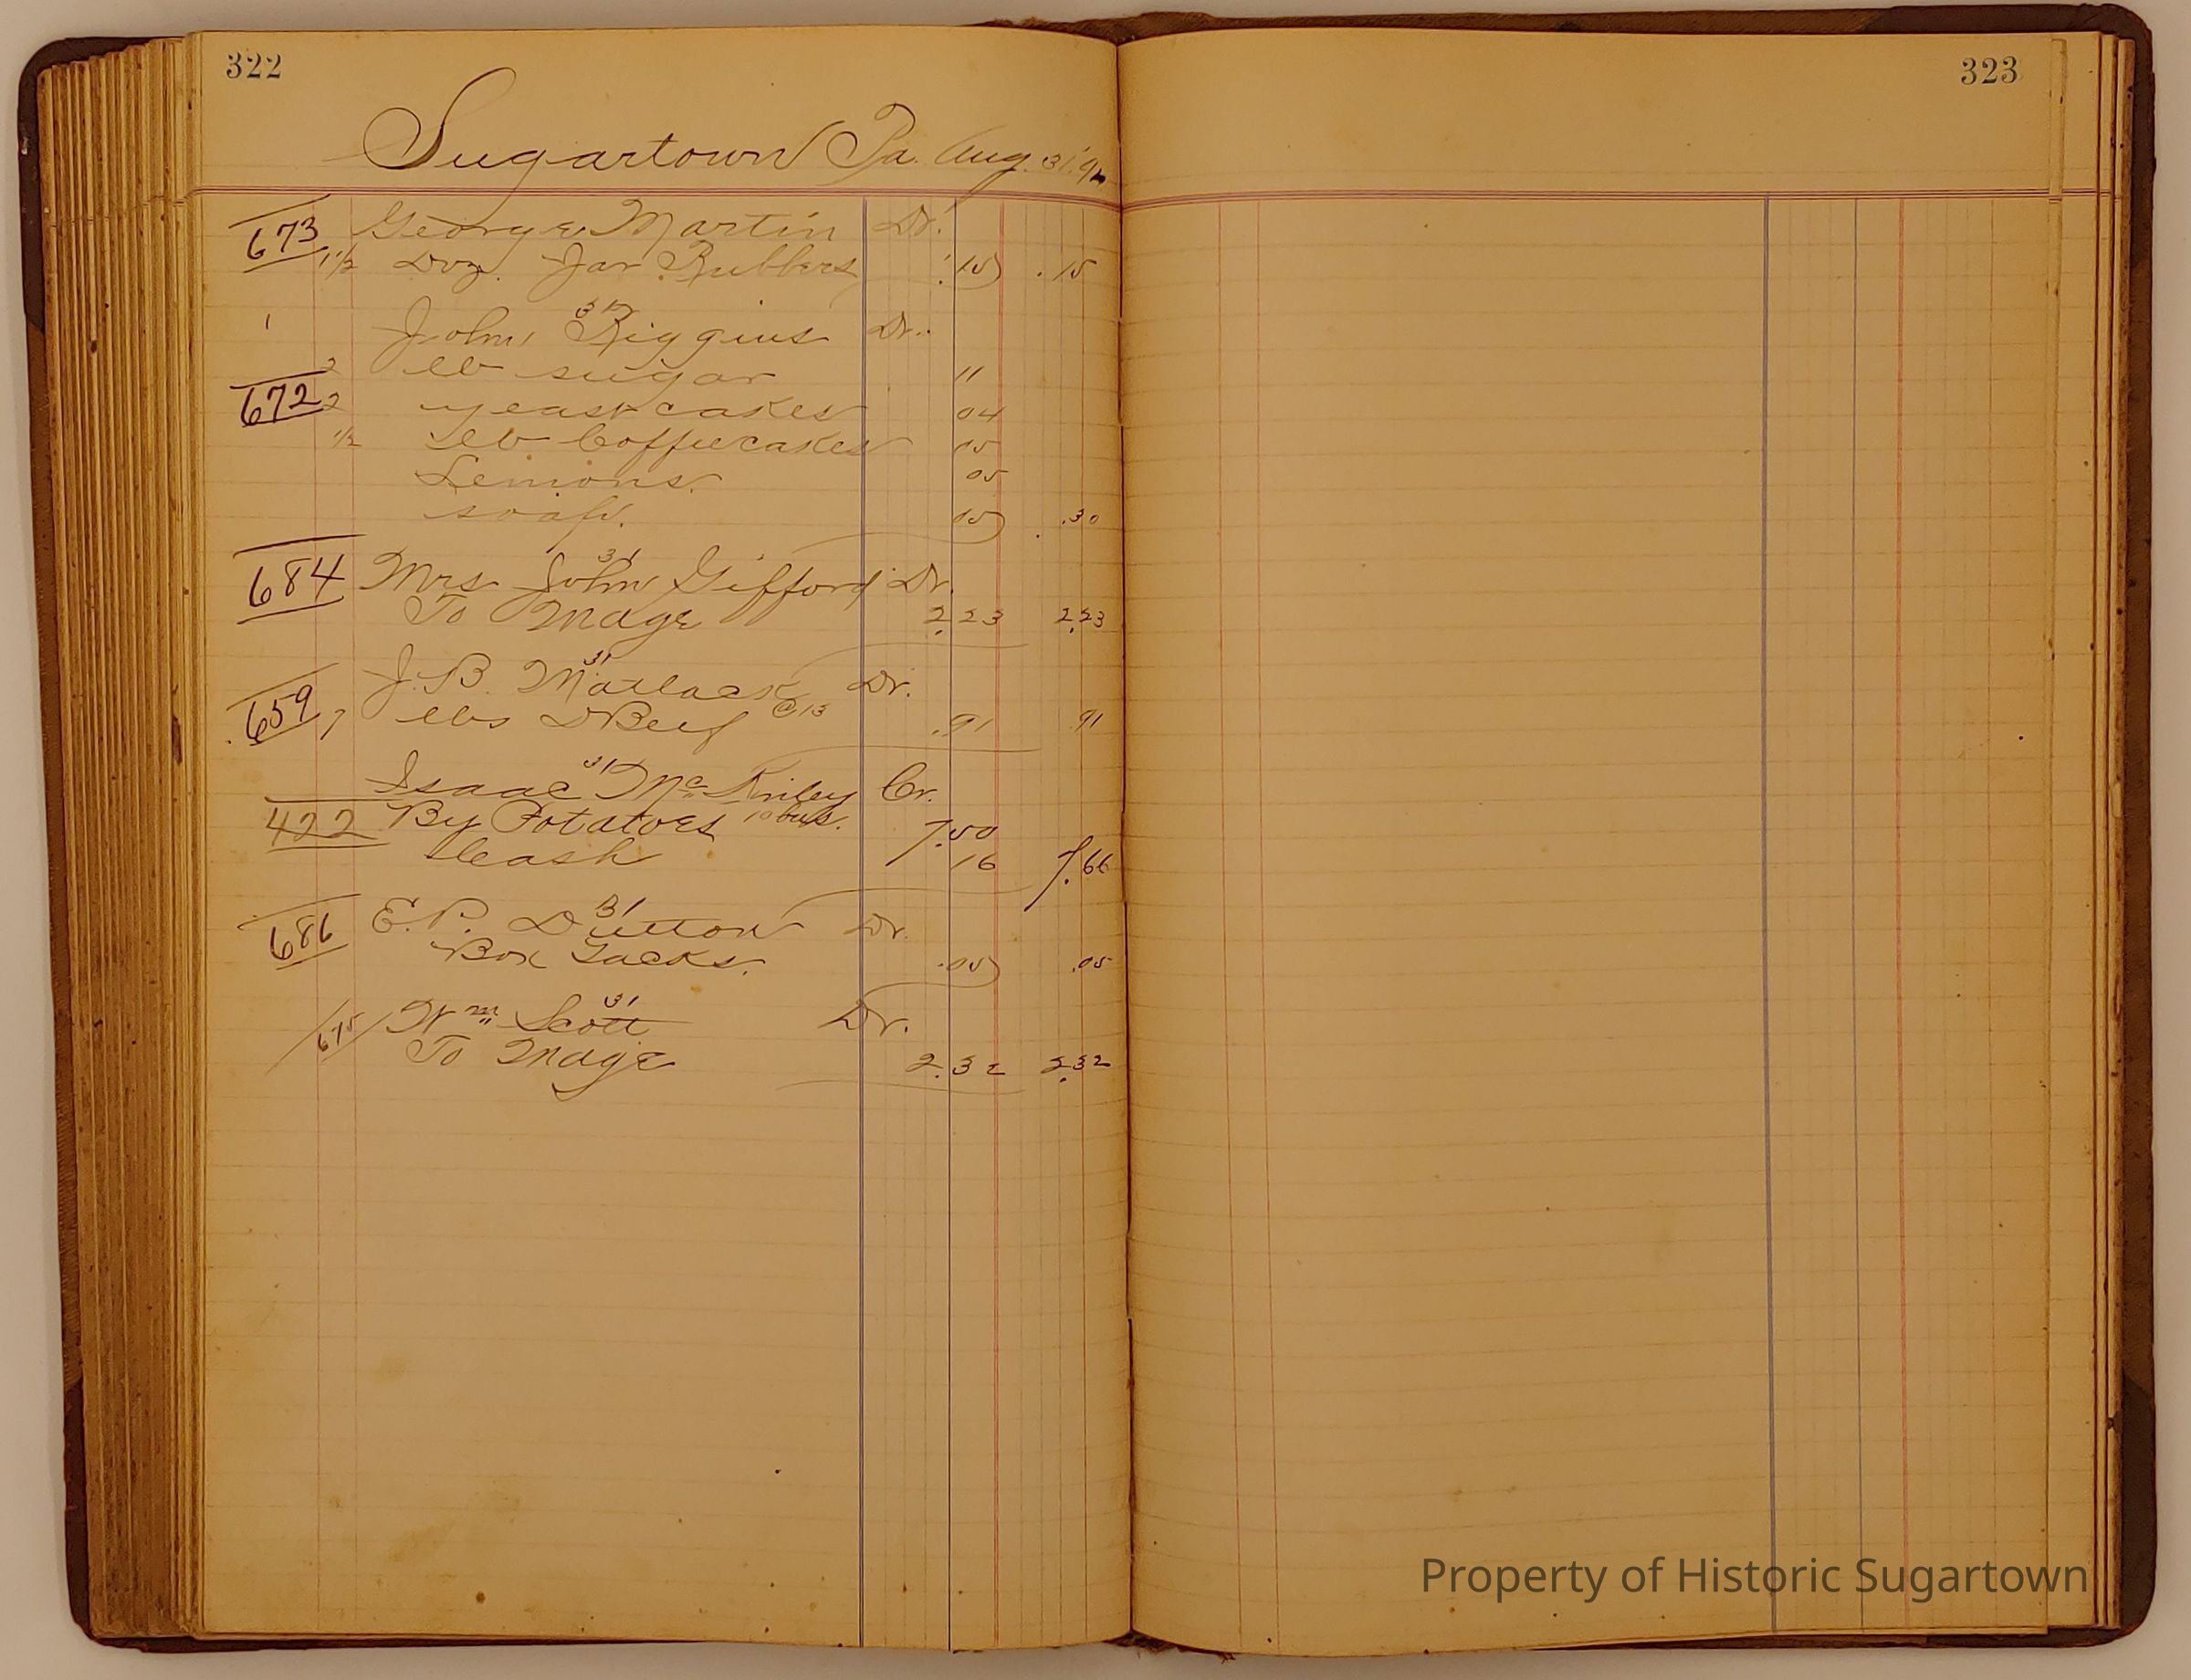 322
Sugartown Pa. Aug. 31.
673 George Martin Dr.
1 1/2 Doz. Jar Rubbers .15 .15
31
John Riggins Dr.
2 lb sugar 11
672 2 yeast cakes 04
1/2 lb Coffeecakes 05
Lemons. 05
soap. 05 .30
31
684 Mrs John Gifford Dr.
To Mdge 2.23 2.23
31
J. B. Matlack Dr.
659 7 lbs DBeef @13 .91 91
31
Isaac McKinley Cr.
422 By Potatoes 10 bus. 7.50
Cash 16 7.66
31
686 E. P. Dutton Dr.
Box Tacks. .05 .05
31
675 Wm Scott Dr.
To Mdge 2.32 2.32
323
Property of Historic Sugartown